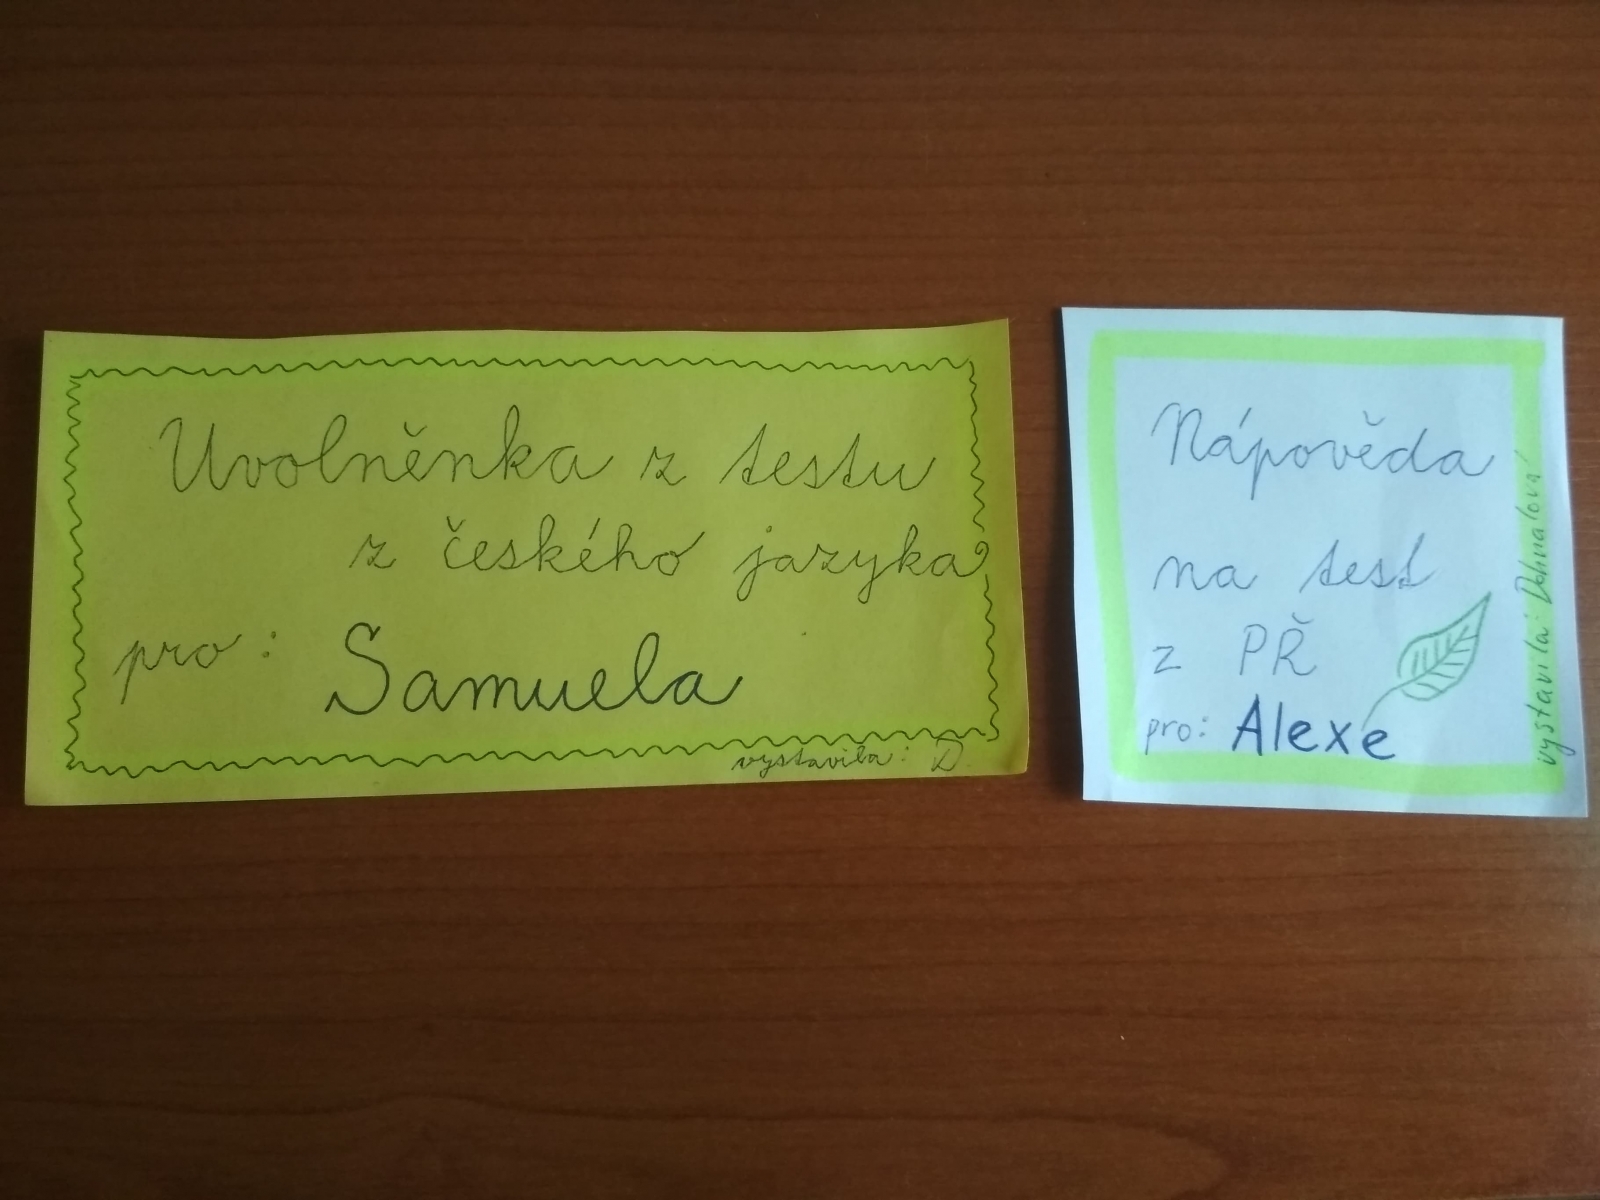 Uvolněnka z testu
z českého jazyka
pro: Samuela
vystavila: D.
Nápověda
na test
z PŘ
pro: Alexe
vystavila: Dohnalová